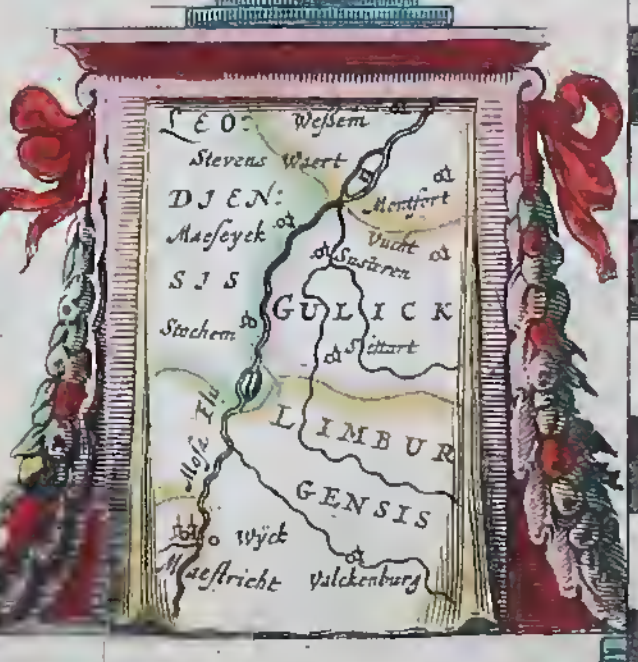 LEO: Weſsem
Stevens Waert
DIEN: Montfort
Maeſeyck Vucht
Suſteren
SIS
GULICK
Stochem Sittart
Moſa Flu
LIMBUR
GENSIS
Wÿck
Maeſtricht Valckenburg